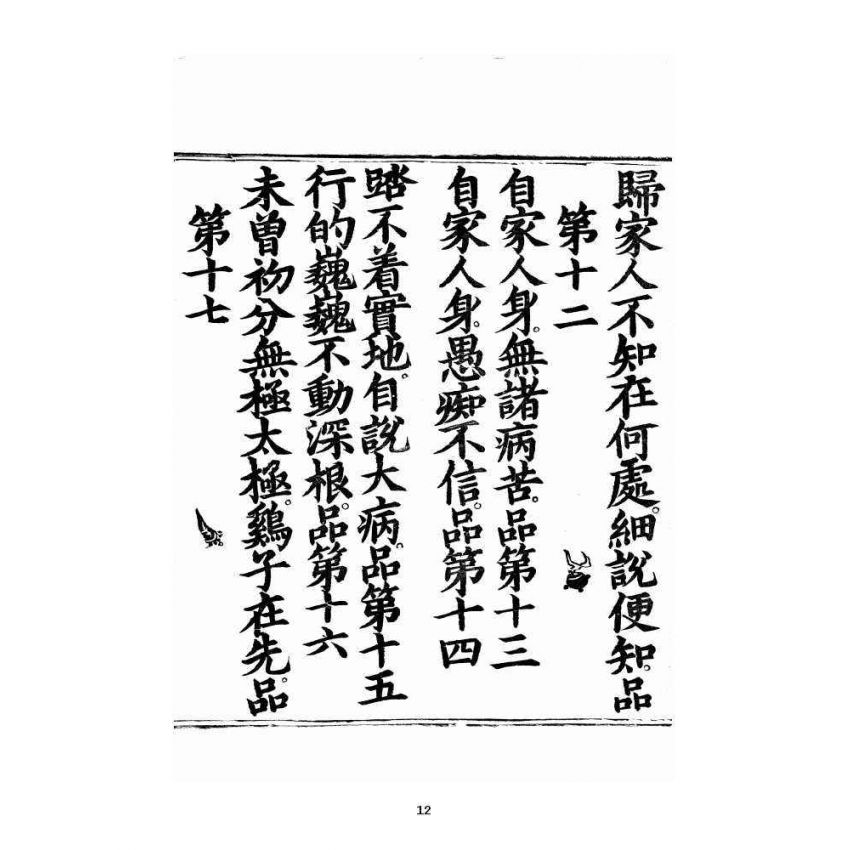 歸家人不知在何處。細說便知。品
第十二
自家人身。無諸病苦。品第十三
自家人身。愚痴不信。品第十四
踏不着實地。自說大病。品第十五
行的巍巍不動深根。品第十六
未曾初分無極太極。鷄子在先。品
第十七
12